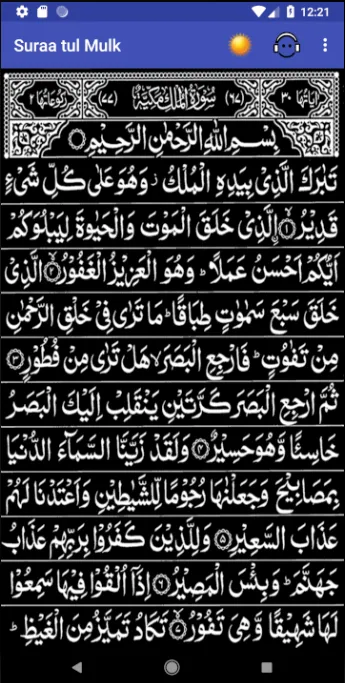 12:21
Suraa tul Mulk
اٰیَاتُهَا ۳۰ (٦٧) سُوْرَةُ الْمُلْكِ مَكِّيَّةٌ (٧٧) رُكُوْعَاتُهَا ٢
بِسْمِ اللّٰهِ الرَّحْمٰنِ الرَّحِيْمِ
تَبٰرَكَ الَّذِیْ بِیَدِهِ الْمُلْكُ ؗ وَهُوَ عَلٰی كُلِّ شَیْءٍ
قَدِیْرُ ۙ۝۱ اۨلَّذِیْ خَلَقَ الْمَوْتَ وَالْحَیٰوةَ لِیَبْلُوَكُمْ
اَیُّكُمْ اَحْسَنُ عَمَلًا ؕ وَهُوَ الْعَزِیْزُ الْغَفُوْرُ ۙ۝۲ الَّذِیْ
خَلَقَ سَبْعَ سَمٰوٰتٍ طِبَاقًا ؕ مَا تَرٰی فِیْ خَلْقِ الرَّحْمٰنِ
مِنْ تَفٰوُتٍ ؕ فَارْجِعِ الْبَصَرَ ۙ هَلْ تَرٰی مِنْ فُطُوْرٍ ۝۳
ثُمَّ ارْجِعِ الْبَصَرَ كَرَّتَیْنِ یَنْقَلِبْ اِلَیْكَ الْبَصَرُ
خَاسِئًا وَّهُوَ حَسِیْرٌ ۝۴ وَلَقَدْ زَیَّنَّا السَّمَآءَ الدُّنْیَا
بِمَصَابِیْحَ وَجَعَلْنٰهَا رُجُوْمًا لِّلشَّیٰطِیْنِ وَاَعْتَدْنَا لَهُمْ
عَذَابَ السَّعِیْرِ ۝۵ وَلِلَّذِیْنَ كَفَرُوْا بِرَبِّهِمْ عَذَابُ
جَهَنَّمَ ؕ وَبِئْسَ الْمَصِیْرُ ۝۶ اِذَاۤ اُلْقُوْا فِیْهَا سَمِعُوْا
لَهَا شَهِیْقًا وَّهِیَ تَفُوْرُ ۙ۝۷ تَكَادُ تَمَیَّزُ مِنَ الْغَیْظِ ؕ